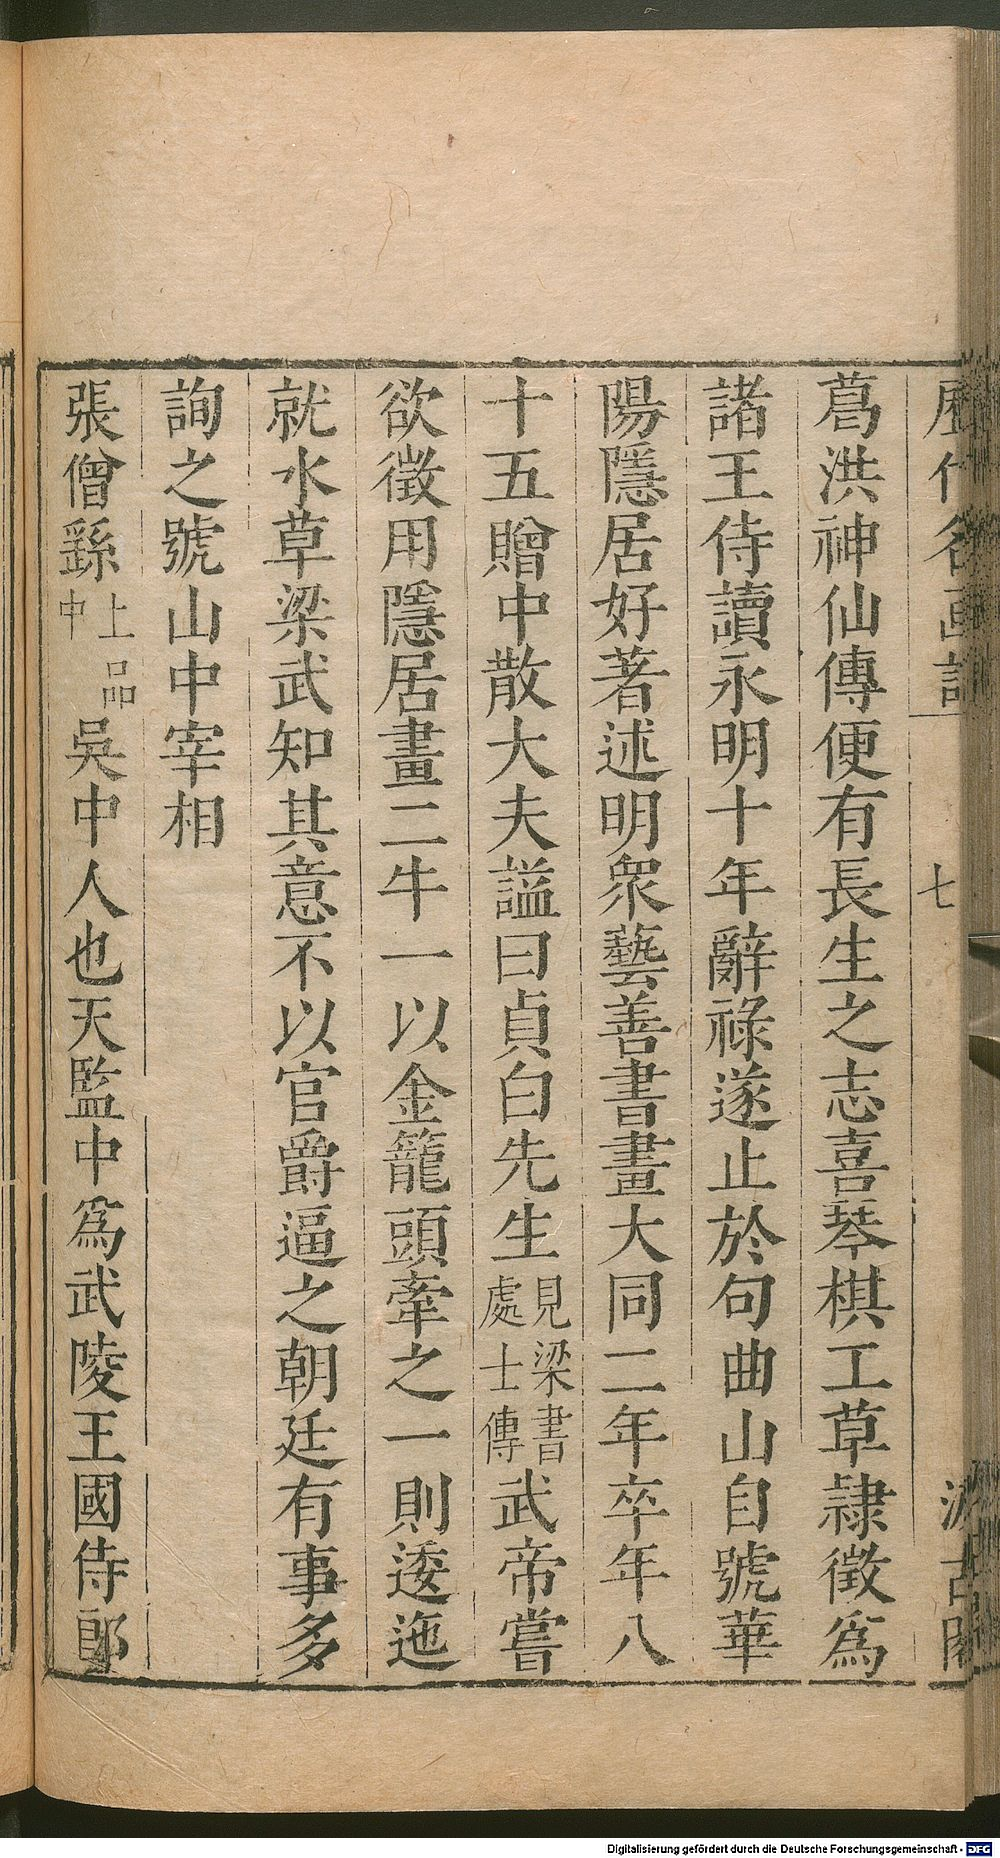 歷代名画記
七
汲古閣
葛洪神仙傳便有長生之志喜琴棋工草隷徵爲
諸王侍讀永明十年辭祿遂止於句曲山自號華
陽隱居好著述明衆藝善書畫大同二年卒年八
十五贈中散大夫謚曰貞白先生見梁書處士傳武帝嘗
欲徵用隱居畫二牛一以金籠頭牽之一則逶迤
就水草梁武知其意不以官爵逼之朝廷有事多
詢之號山中宰相
張僧繇上品中吳中人也天監中爲武陵王國侍郎
Digitalisierung gefördert durch die Deutsche Forschungsgemeinschaft - DFG